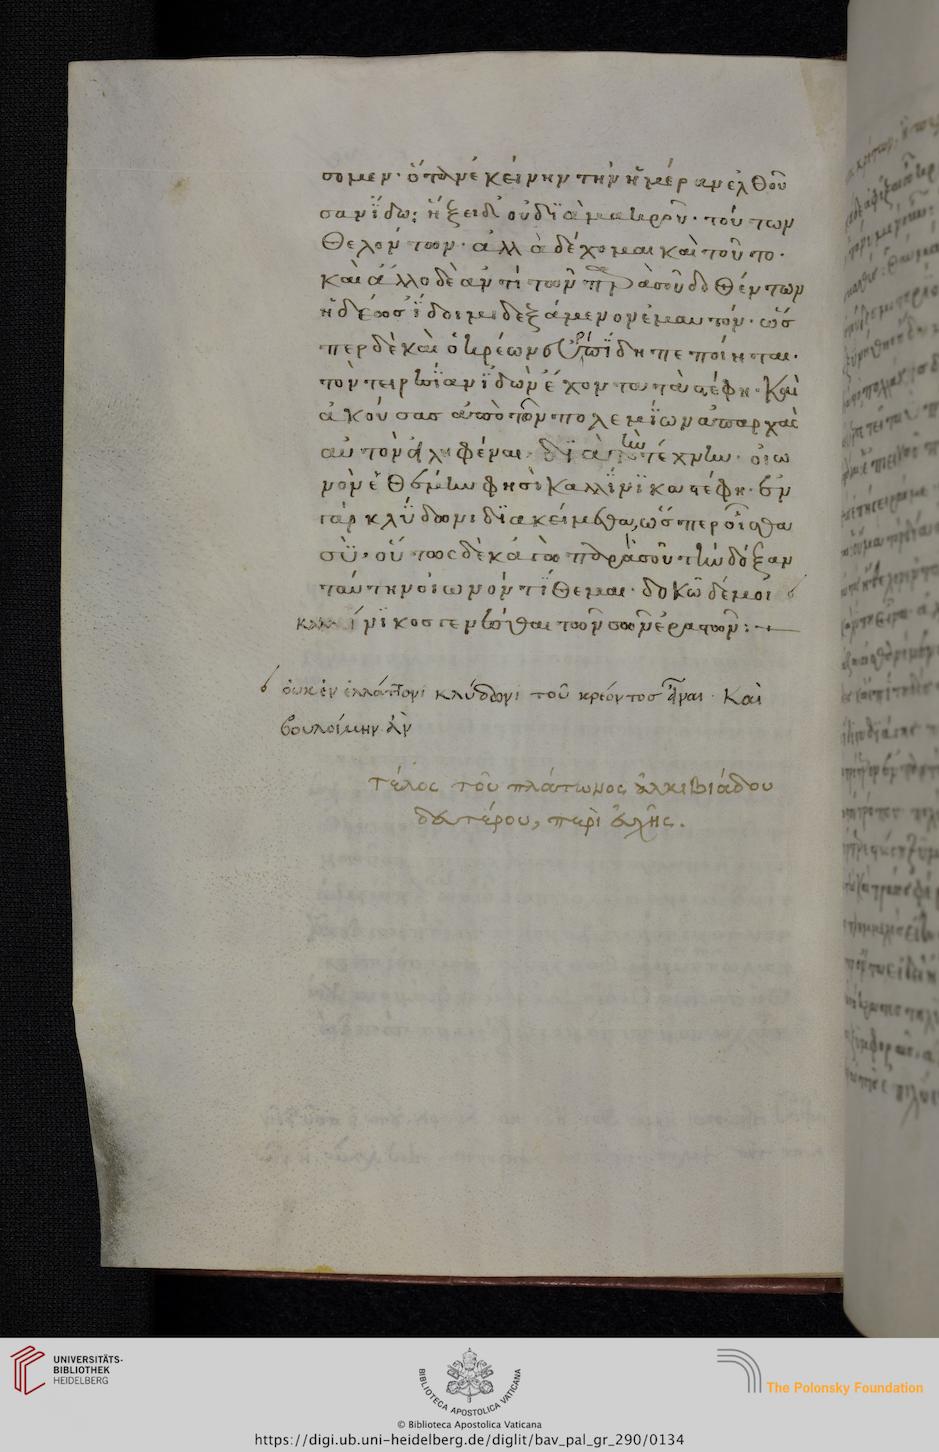 σομεν· ὅταν ἐκείνην τὴν ἡμέραν ἐλθοῦ
σαν ἴδω; ἥξει δ' οὐ διὰ μακροῦ· τούτων
θελόντων· ἀλλὰ δέχομαι καὶ τοῦτο·
καὶ ἄλλο δὲ ἂν τὶ τῶν παρὰ σοῦ δοθέντων
ἡδέως ἴδοιμι δεξάμενον ἐμαυτόν· ὥσ
περ δὲ καὶ ὁ κρέων εὐριπίδη πεποίηται·
τὸν τειρεσίαν ἰδὼν ἔχοντα τὰ στέφη· καὶ
ἀκούσας ἀπὸ τῶν πολεμίων ἀπαρχὰς
αὐτὸν εἰληφέναι· διὰ τὴν τέχνην· οἰω
νὸν ἐθέμην φησὶ καλλίνικα στέφη· ἐν
γὰρ κλύδωνι διακείμεθα, ὥσπερ οἶσθα
σύ· οὕτως δὲ κἀγὼ παρὰ σοῦ τὴν δόξαν
ταύτην οἰωνὸν τίθεμαι· δοκῶ δέ μοι
καλλίνικος γενέσθαι τῶν σῶν ἐραστῶν:
οὐκ ἐν ἐλλάττονι κλύδωνι τοῦ κρέοντος εἶναι· καὶ
βουλοίμην ἂν
τέλος τοῦ πλάτωνος ἀλκιβιάδου
δευτέρου, περὶ εὐχῆς.
UNIVERSITÄTS-
BIBLIOTHEK
HEIDELBERG
BIBLIOTECA APOSTOLICA VATICANA
The Polonsky Foundation
© Biblioteca Apostolica Vaticana
https://digi.ub.uni-heidelberg.de/diglit/bav_pal_gr_290/0134